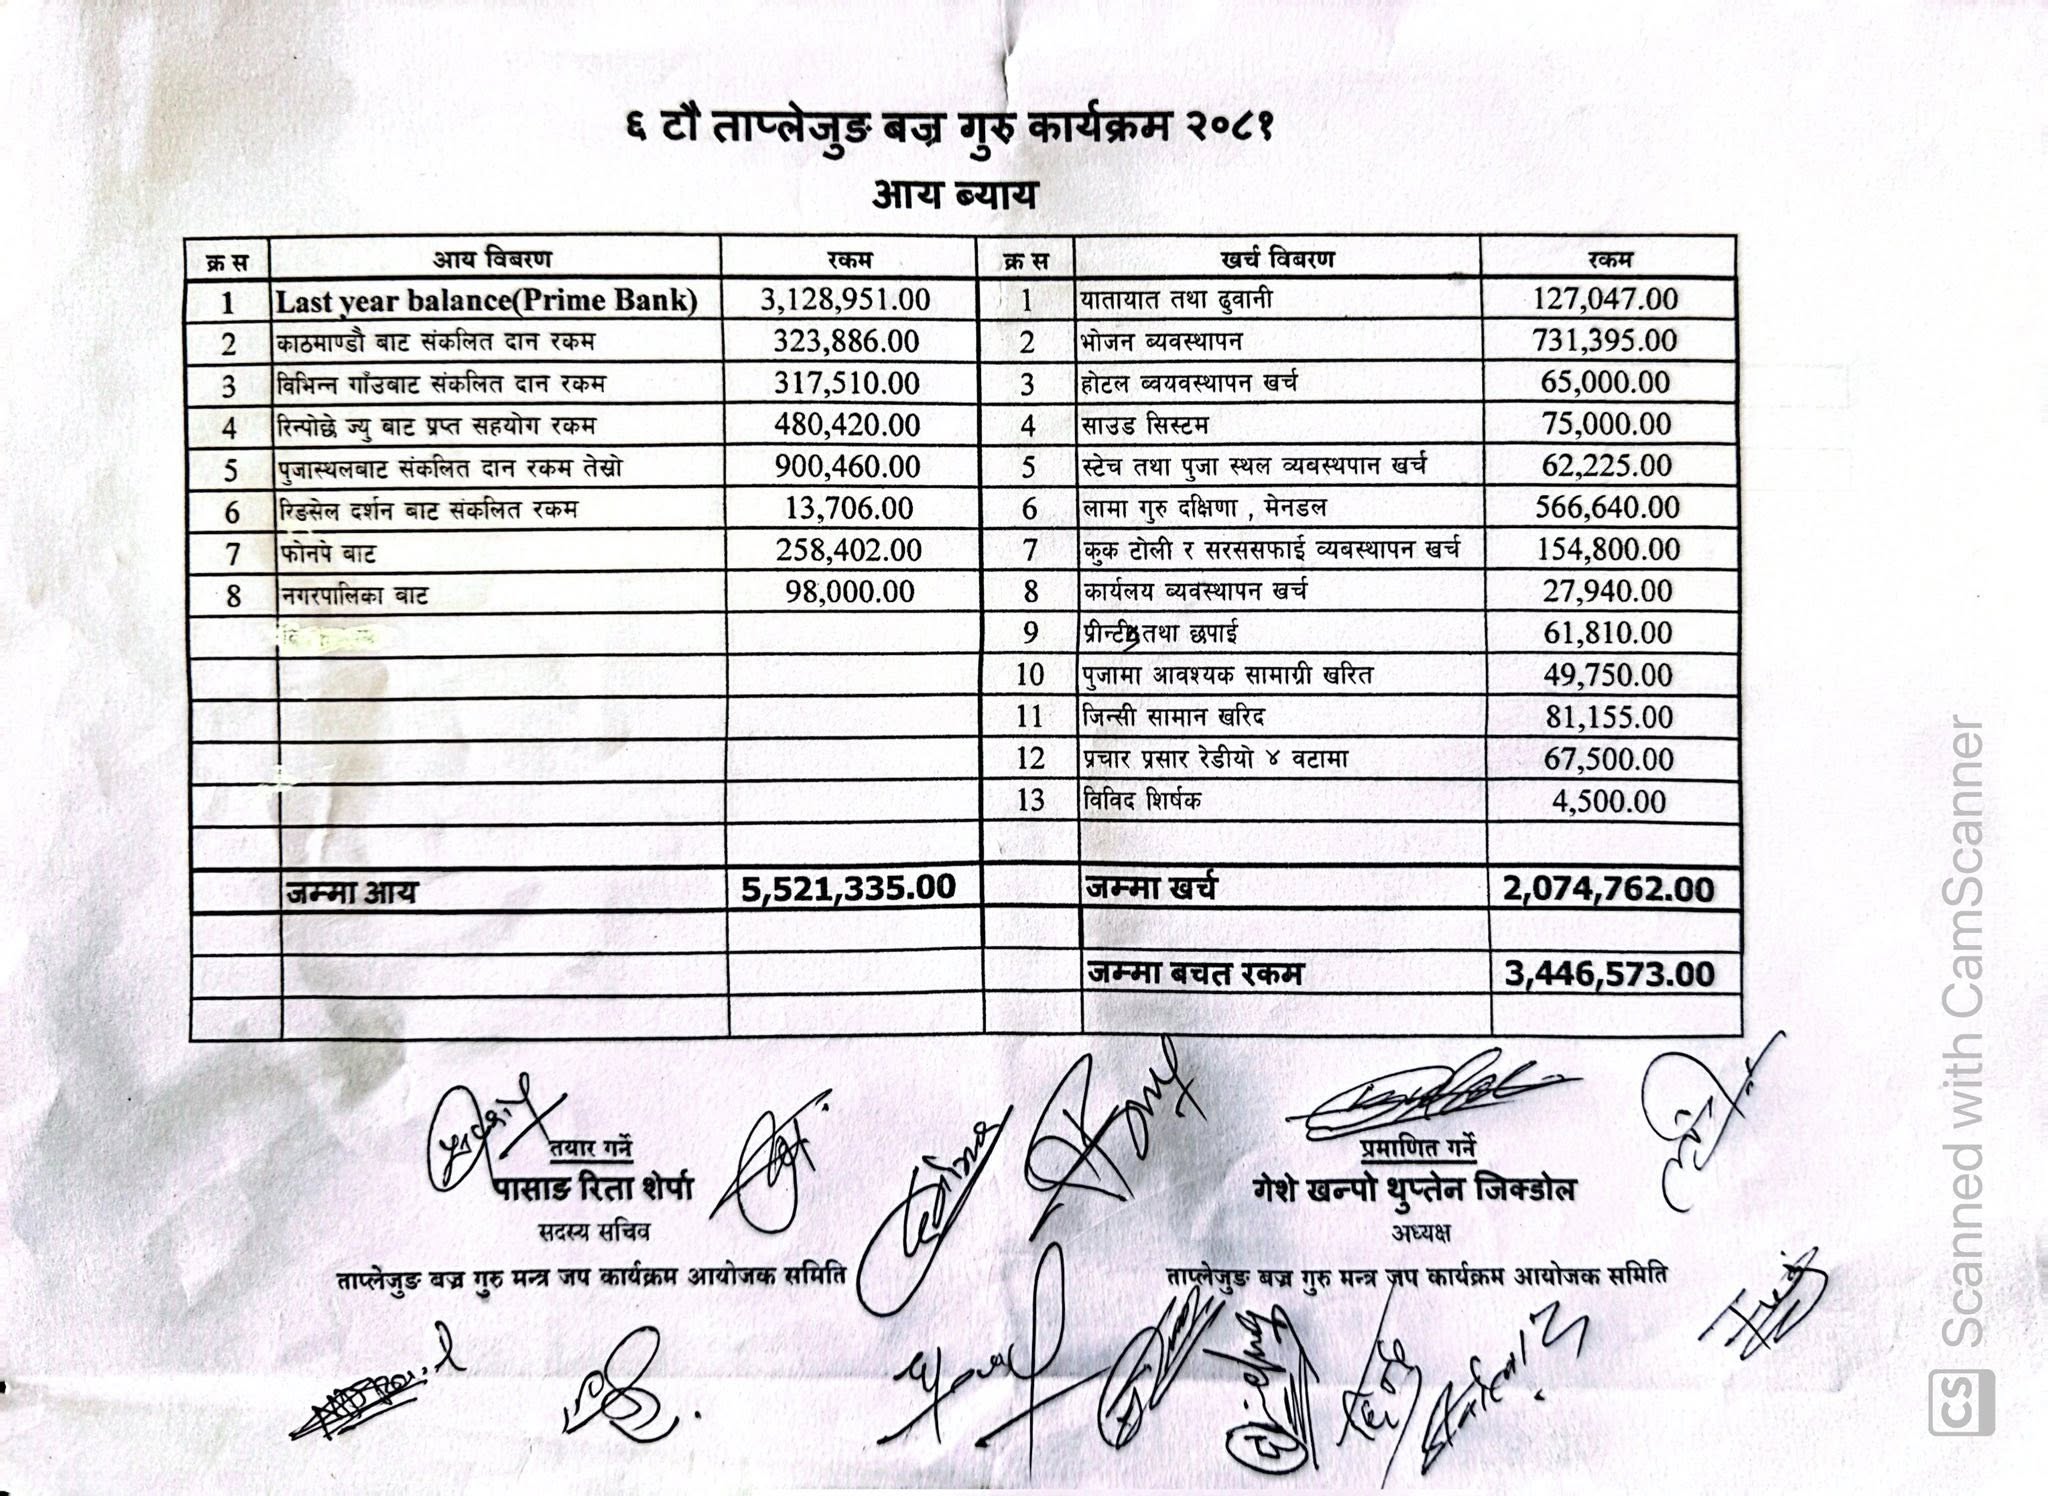 ६ टौ ताप्लेजुङ बज्र गुरु कार्यक्रम २०८१
आय ब्याय
क्र स आय विबरण रकम क्र स खर्च विबरण रकम
1 Last year balance(Prime Bank) 3,128,951.00 1 यातायात तथा ढुवानी 127,047.00
2 काठमाण्डौ बाट संकलित दान रकम 323,886.00 2 भोजन ब्यवस्थापन 731,395.00
3 विभिन्न गाँउबाट संकलित दान रकम 317,510.00 3 होटल ब्वयवस्थापन खर्च 65,000.00
4 रिन्पोछे ज्यु बाट प्रप्त सहयोग रकम 480,420.00 4 साउड सिस्टम 75,000.00
5 पुजास्थलबाट संकलित दान रकम तेस्रो 900,460.00 5 स्टेच तथा पुजा स्थल ब्यबस्थपान खर्च 62,225.00
6 रिडसेल दर्शन बाट संकलित रकम 13,706.00 6 लामा गुरु दक्षिणा , मेनडल 566,640.00
7 फोनपे बाट 258,402.00 7 कुक टोली र सरससफाई व्यबस्थापन खर्च 154,800.00
8 नगरपालिका बाट 98,000.00 8 कार्यलय ब्यवस्थापन खर्च 27,940.00
9 तथा छपाई 61,810.00
10 पुजामा आवश्यक सामाग्री खरित 49,750.00
11 जिन्सी सामान खरिद 81,155.00
12 प्रचार प्रसार रेडीयो ४ वटामा 67,500.00
13 विविद शिर्षक 4,500.00
जम्मा आय 5,521,335.00 जम्मा खर्च 2,074,762.00
जम्मा बचत रकम 3,446,573.00
तयार गर्ने प्रमाणित गर्ने
पासाङ रिता शेर्पा गेशे खन्पो थुप्तेन जिक्डोल
सदस्य सचिव अध्यक्ष
ताप्लेजुङ बज्र गुरु मन्त्र जप कार्यक्रम आयोजक समिति ताप्लेजुङ बज्र गुरु मन्त्र जप कार्यक्रम आयोजक समिति
CS Scanned with CamScanner